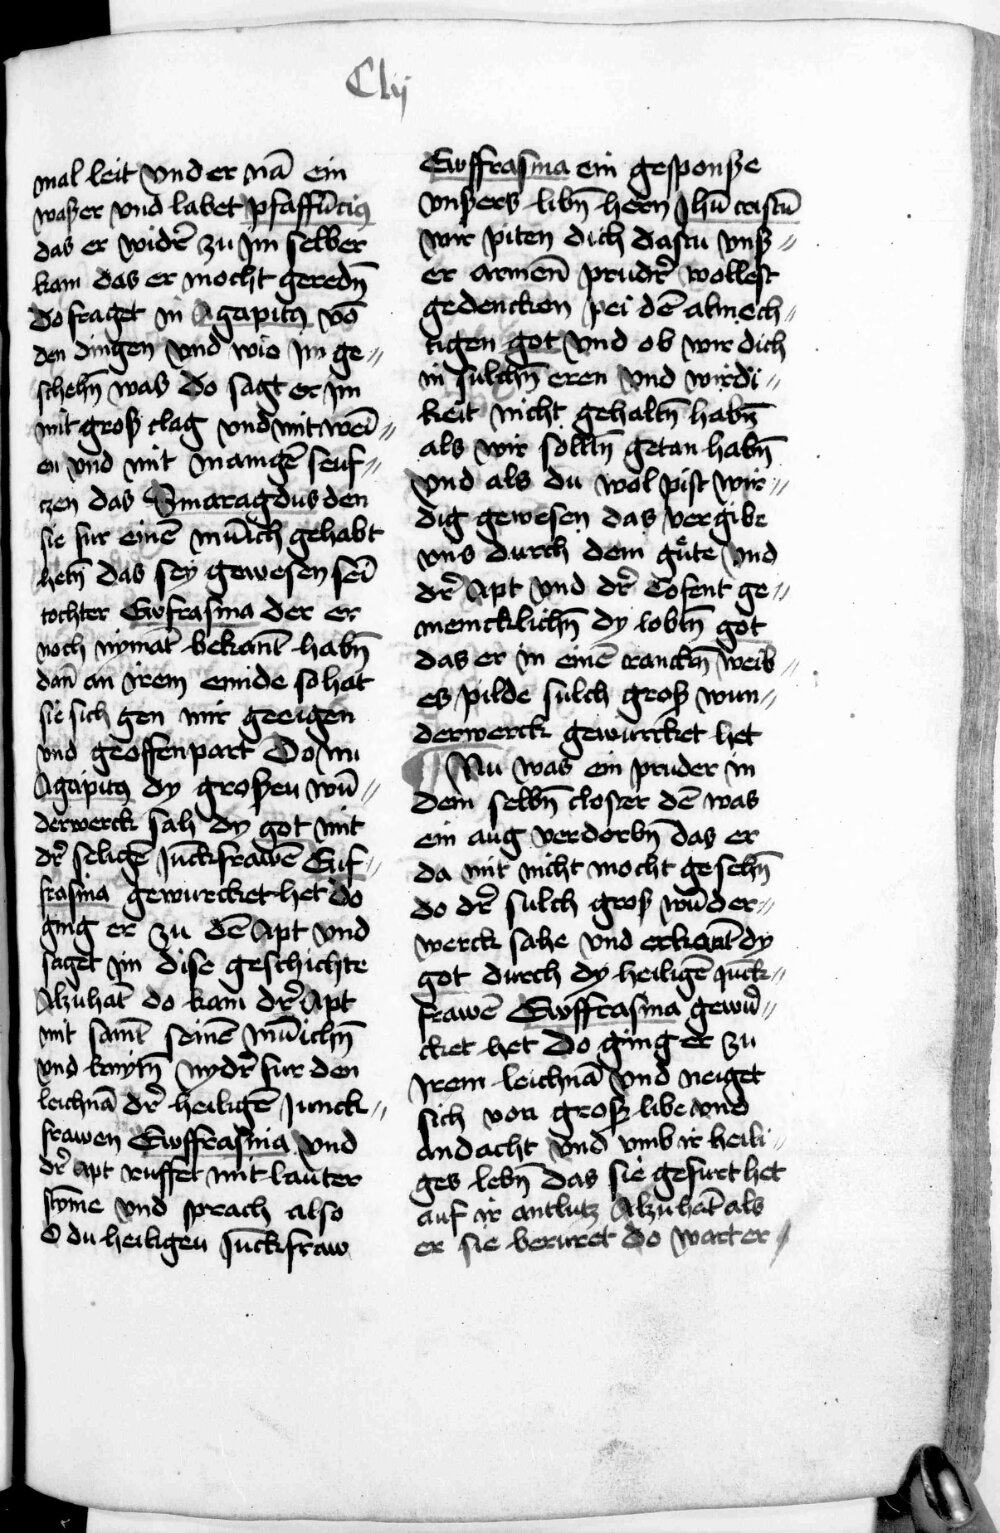 Clij
mal leit vnd er nā ein
waßer vnd labet pfaffūciꝯ
das er widr̄ zu Jm selber
kam das er mocht geredn̄
do fraget in Agapitꝯ vō
den dingen vnd wie Jm ge〃
schehn̄ was do sagt er Jm
mit groß clag vnd mit wei〃
en vnd mit manigē seuf〃
czen das Smaragdus den
sie fur einē mūich gehabt
hetn̄ das sey gewesen sei
tochter Ewfrasina der er
noch nymāt bekant habn̄
dan̄ an irem emide so hat
sie sich gen mir geeigen
vnd geoffenpart Do nu
Agapitꝯ dy großen wū〃
derwerck sah dy got mit
dr̄ seligē Jūckfrawē Euf〃
frasina gewurcket het do
ging er zu dē Apt vnd
saget im dise geschichte
Alzuhāt do kam dr̄ Apt
mit samt seinē mūichn̄
vnd knytn̄ nydr̄ fur den
leichnā dr̄ heiligē Junck〃
frawen Ewffrasina vnd
dr̄ apt ruffet mit lauter
stȳme vnd sprach also
O du heiligeu Jūckfraw
Ewffrasina ein gesponße
vnßers libn̄ hern Jhū cristū
wir piten dich dastu vnß〃
er armen̄ prudr̄ wollest
gedencken pei dē almech〃
tigen got vnd ob wir dich
in sulchn̄ eren vnd wirdi〃
keit nicht gehaltn̄ habn̄
als wir solltn̄ getan habn̄
vnd als du wol pist wir〃
dig gewesen das vergibe
vns durch dein gute vnd
dr̄ Apt vnd dr̄ Cofent ge〃
meincklichn̄ dy lobtn̄ got
das er in einē cranckn̄ weib〃
es pilde sulch groß wun〃
derwerck gewurcket het
¶ Nu was ein pruder in
dem selbn̄ closter dē was
ein aug verdorbn̄ das er
da mit nicht mocht gesehn̄
do dr̄ sulch groß wūder〃
werck sahe vnd erkant dy
got durch dy heiligē Jūck〃
frawē Ewffrasina gewur〃
cket het Do ging er zu
Jrem leichnā vnd neiget
sich von groß libe vnd
andacht vnd vmb ir heili〃
ges lebn̄ das sie gefurt het
auf ir antlutz Alzuhāt als
er sie beruret do wart er